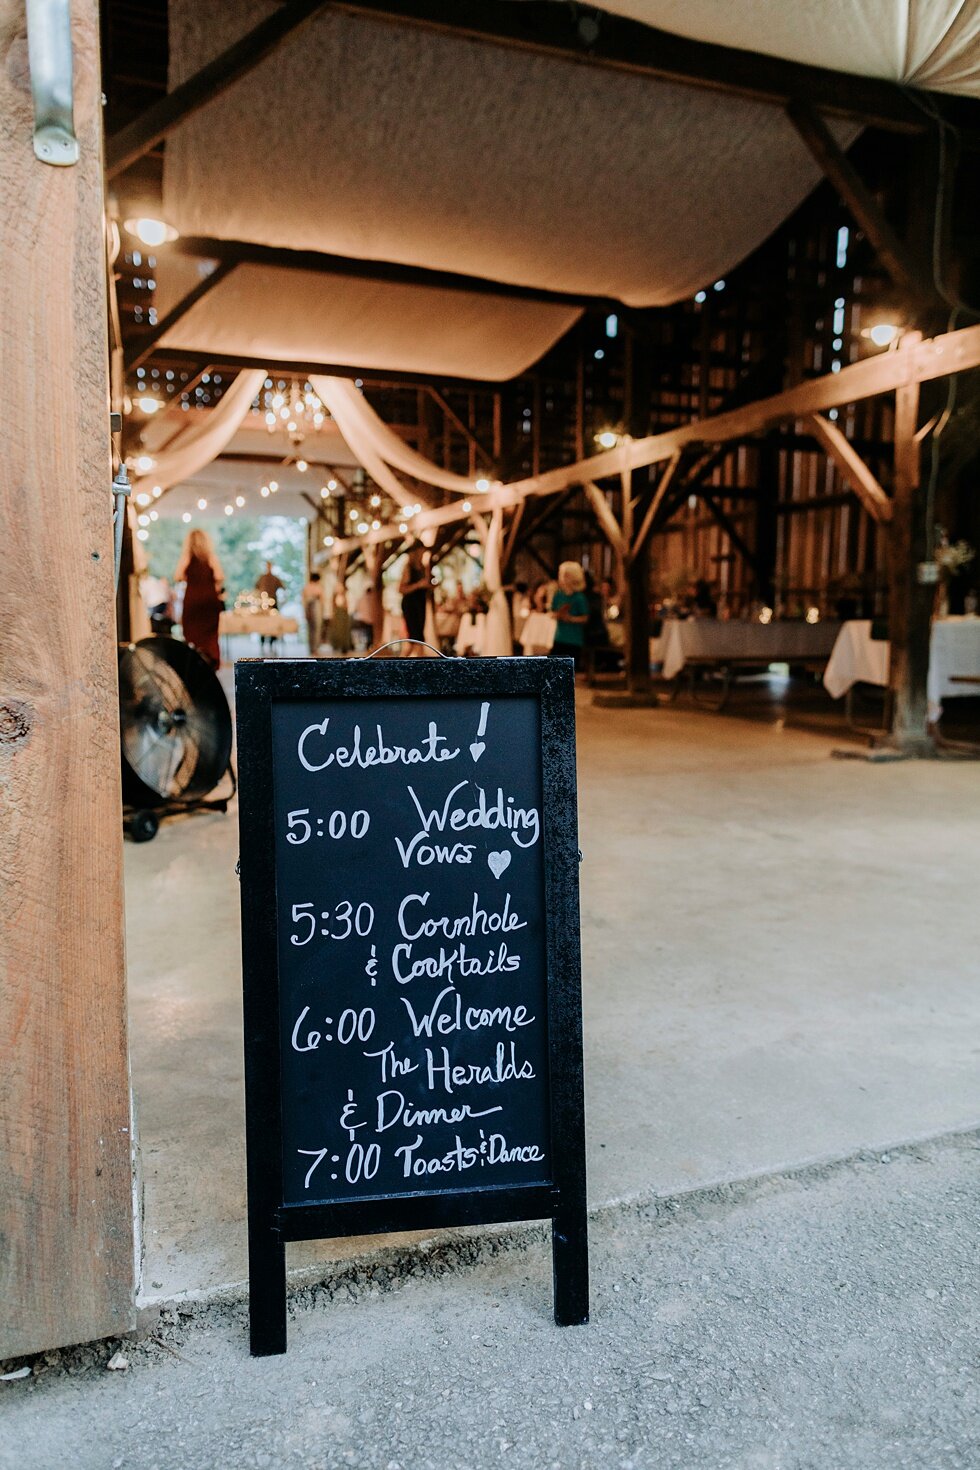 Celebrate!
5:00 Wedding
Vows
5:30 Cornhole
& Cocktails
6:00 Welcome
The Heralds
& Dinner
7:00 Toasts & Dance